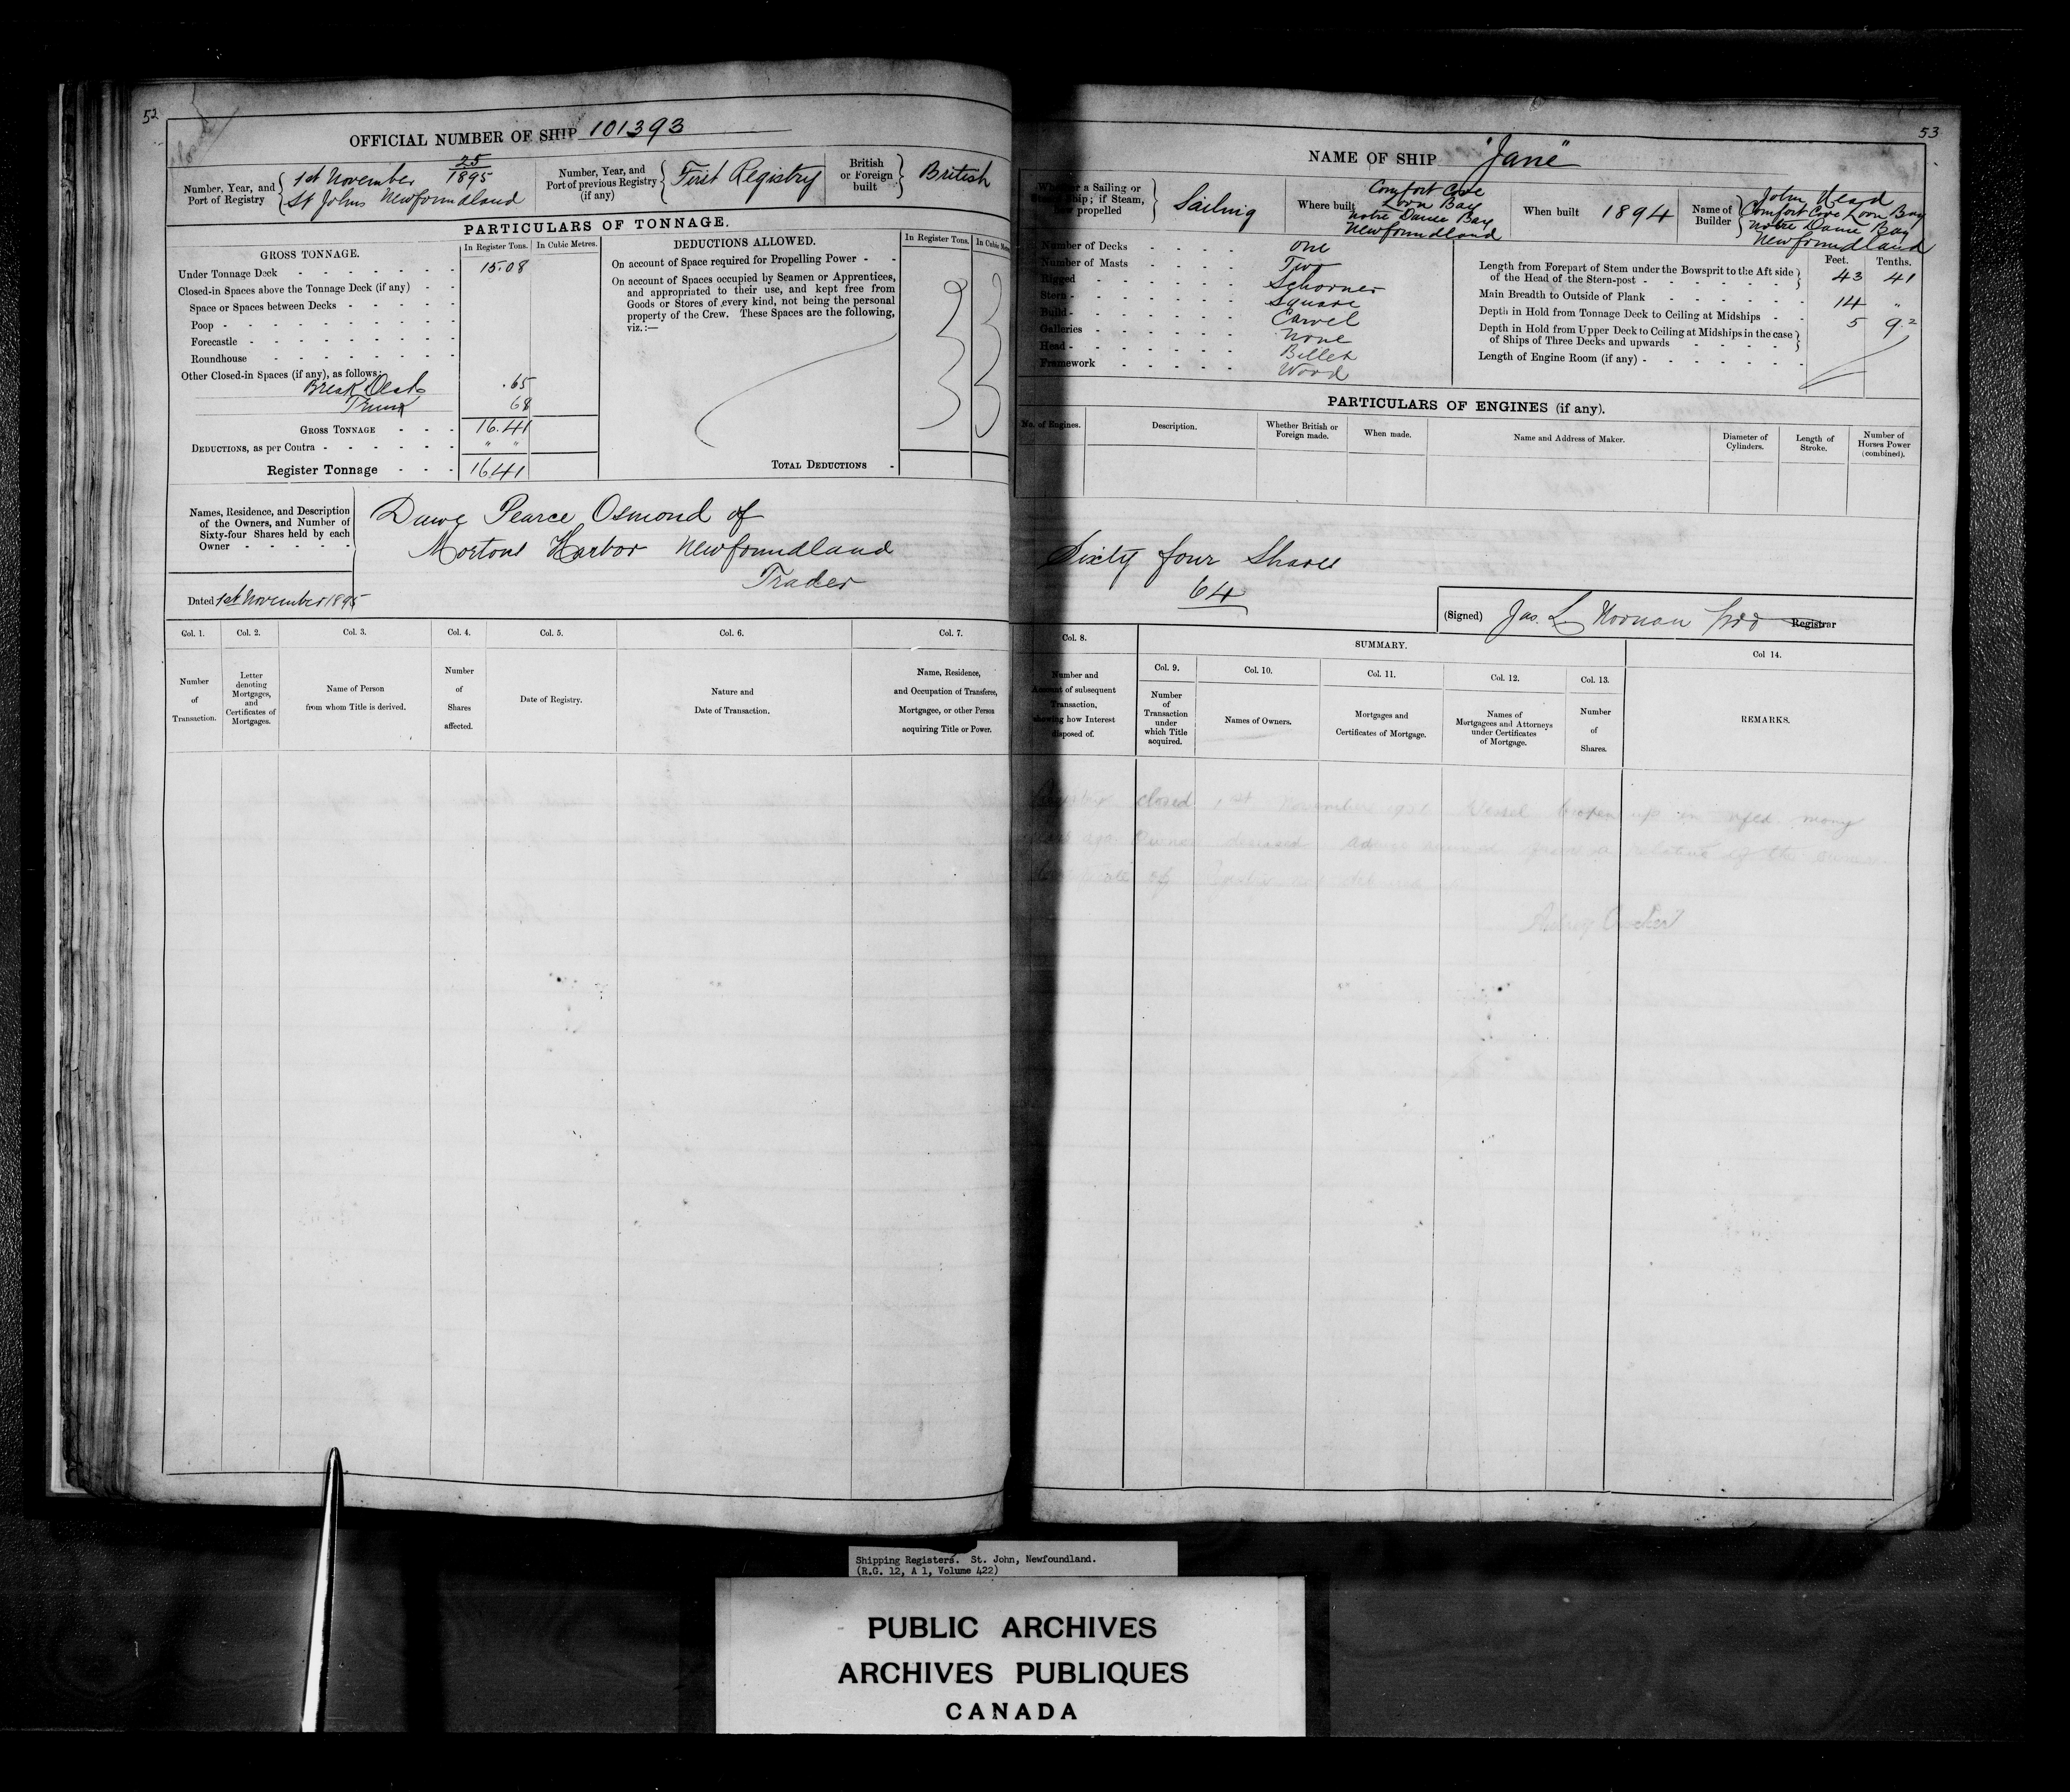 52
OFFICIAL NUMBER OF SHIP 101393
Number, Year, and Port of Registry
1st November 25/1895
St Johns Newfoundland
Number, Year, and Port of previous Registry (if any)
First Registry
British or Foreign built
British
PARTICULARS OF TONNAGE.
GROSS TONNAGE.
In Register Tons.
In Cubic Metres.
Under Tonnage Deck - - - - - - 15.08
Closed-in Spaces above the Tonnage Deck (if any) - -
Space or Spaces between Decks - - - - -
Poop - - - - - - - - -
Forecastle - - - - - - - -
Roundhouse - - - - - - - -
Other Closed-in Spaces (if any), as follows:
Break Deck .65
Trunk 68
GROSS TONNAGE - - - 16.41
DEDUCTIONS, as per Contra - - - - - - " "
Register Tonnage - - - 16.41
DEDUCTIONS ALLOWED.
In Register Tons.
On account of Space required for Propelling Power - -
On account of Spaces occupied by Seamen or Apprentices, and appropriated to their use, and kept free from Goods or Stores of every kind, not being the personal property of the Crew. These Spaces are the following, viz.:—
TOTAL DEDUCTIONS -
Names, Residence, and Description
of the Owners, and Number of
Sixty-four Shares held by each
Owner - - - - -
Pearce Osmond of
Mortons Harbor Newfoundland
Trader
Dated 1st November 1895
Col. 1.
Number of Transaction.
Col. 2.
Letter denoting Mortgages, and Certificates of Mortgages.
Col. 3.
Name of Person from whom Title is derived.
Col. 4.
Number of Shares affected.
Col. 5.
Date of Registry.
Col. 6.
Nature and Date of Transaction.
Col. 7.
Name, Residence, and Occupation of Transferee, Mortgagee, or other Person acquiring Title or Power.
53
NAME OF SHIP "Jane"
Whether a Sailing or Steam Ship; if Steam, how propelled
Sailing
Where built
Comfort Cove
Loon Bay
Notre Dame Bay
Newfoundland
When built 1894
Name of Builder
John Heard
Comfort Cove Loon Bay
Notre Dame Bay
Newfoundland
Number of Decks - - - - One
Number of Masts - - - - Two
Rigged - - - - - - Schooner
Stern - - - - - - Square
Build - - - - - - Carvel
Galleries - - - - - - None
Head - - - - - - Billet
Framework - - - - - Wood
Feet. Tenths.
Length from Forepart of Stem under the Bowsprit to the Aft side of the Head of the Stern-post - - - - - - 43 41
Main Breadth to Outside of Plank - - - - - - 14 "
Depth in Hold from Tonnage Deck to Ceiling at Midships - - 5 9.2
Depth in Hold from Upper Deck to Ceiling at Midships in the case of Ships of Three Decks and upwards - - - -
Length of Engine Room (if any) - - - - - - -
PARTICULARS OF ENGINES (if any).
No. of Engines.
Description.
Whether British or Foreign made.
When made.
Name and Address of Maker.
Diameter of Cylinders.
Length of Stroke.
Number of Horses Power (combined).
Sixty four Shares
64
(Signed) Jas. L. Noonan Registrar
Col. 8.
Number and Account of subsequent Transaction, showing how Interest disposed of.
SUMMARY.
Col. 9.
Number of Transaction under which Title acquired.
Col. 10.
Names of Owners.
Col. 11.
Mortgages and Certificates of Mortgage.
Col. 12.
Names of Mortgagees and Attorneys under Certificates of Mortgage.
Col. 13.
Number of Shares.
Col 14.
REMARKS.
closed 1st November Vessel broken up in Nfld. many
ago. Owner deceased. Advice received from a relative of the owner
of
Shipping Registers. St. John, Newfoundland.
(R.G. 12, A 1, Volume 422)
PUBLIC ARCHIVES
ARCHIVES PUBLIQUES
CANADA